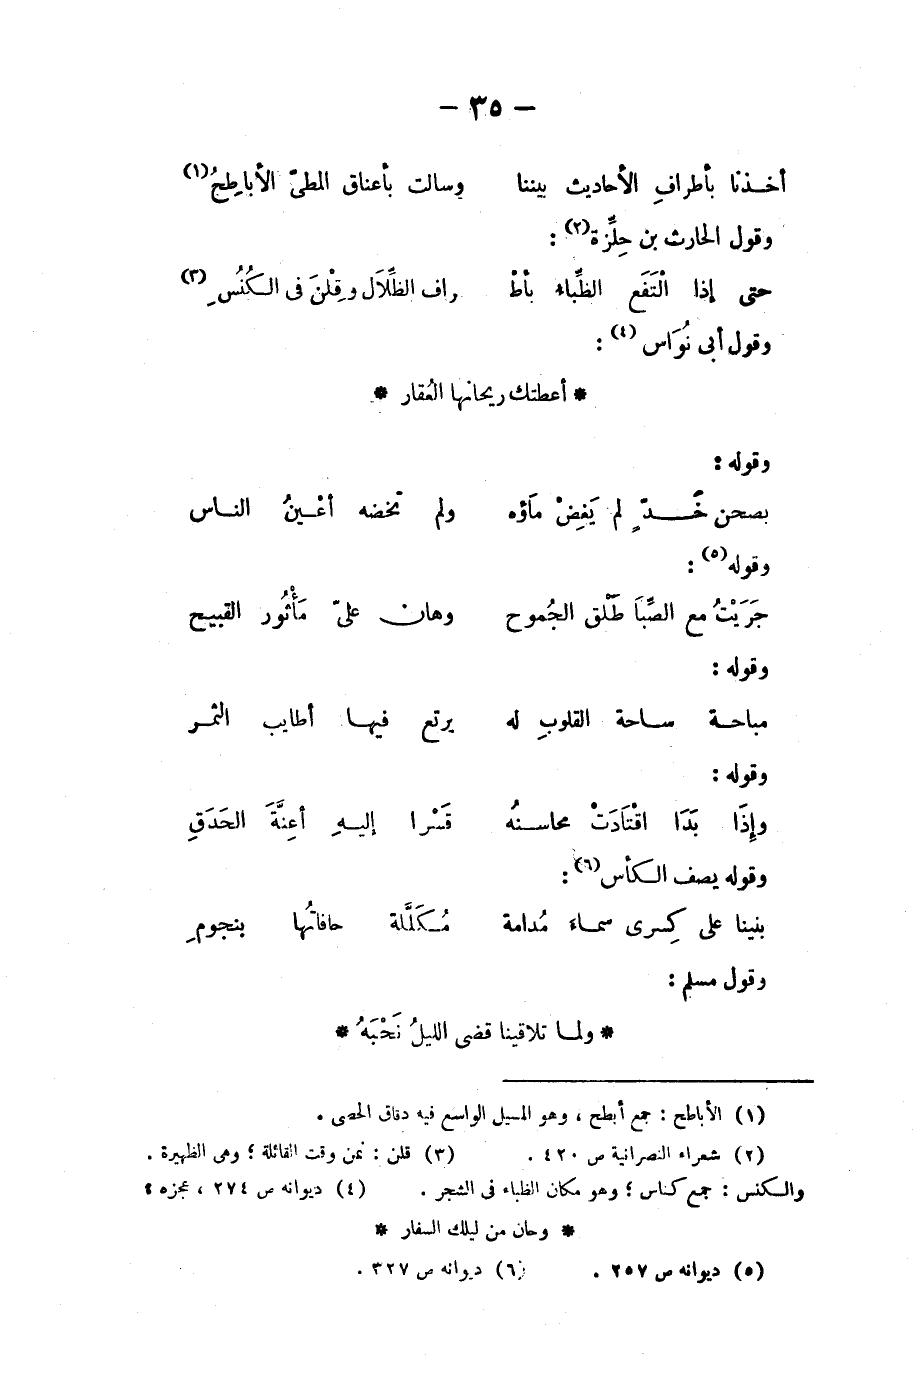 — ٣٥ —
أخـذنا بأطرافِ الأحاديث بيننا وسالت بأعناق المطيّ الأباطِحُ(١)
وقول الحارث بن حِلِّزة(٢) :
حتى إذا الْتَفَع الظِّباء بأطْ راف الظِّلَال وقِلْنَ فى الـكُنُسِ(٣)
وقول أبى نُوَاس(٤) :
* أعطتك ريحانها العُقار *
وقوله :
بصحن خَـــدٍّ لم يَغِضْ مَاؤه ولم تخضه أعْـينُ النـاس
وقوله(٥) :
جَرَيْتُ مع الصِّبَا طَلْق الجُموح وهان علىّ مَأْثُور القبيح
وقوله :
مباحـة سـاحة القلوبِ له يرتع فيهـا أطايب الثمـر
وقوله :
وإِذَا بَدَا اقْتَادَتْ محاسـنُه قَسْرا إليـهِ أعِنَّةَ الحَدَقِ
وقوله يصف الـكأس(٦) :
بنينا على كِسرى سمـاءَ مُدامة مُـكَلَّلة حافاتُها بنجومِ
وقول مسلم :
* ولمـا تلاقينا قضى الليلُ نَحْبَهُ *
(١) الأباطح : جمع أبطح ، وهو المسيل الواسع فيه دقاق الحصى .
(٢) شعراء النصرانية ص ٤٢٠ . (٣) قلن : نمن وقت القائلة ؛ وهى الظهيرة .
والـكنس : جمع كناس ؛ وهو مكان الظباء فى الشجر . (٤) ديوانه ص ٢٧٤ ، عجزه :
* وحان من ليلك السفار *
(٥) ديوانه ص ٢٥٧ . (٦) ديوانه ص ٣٢٧ .